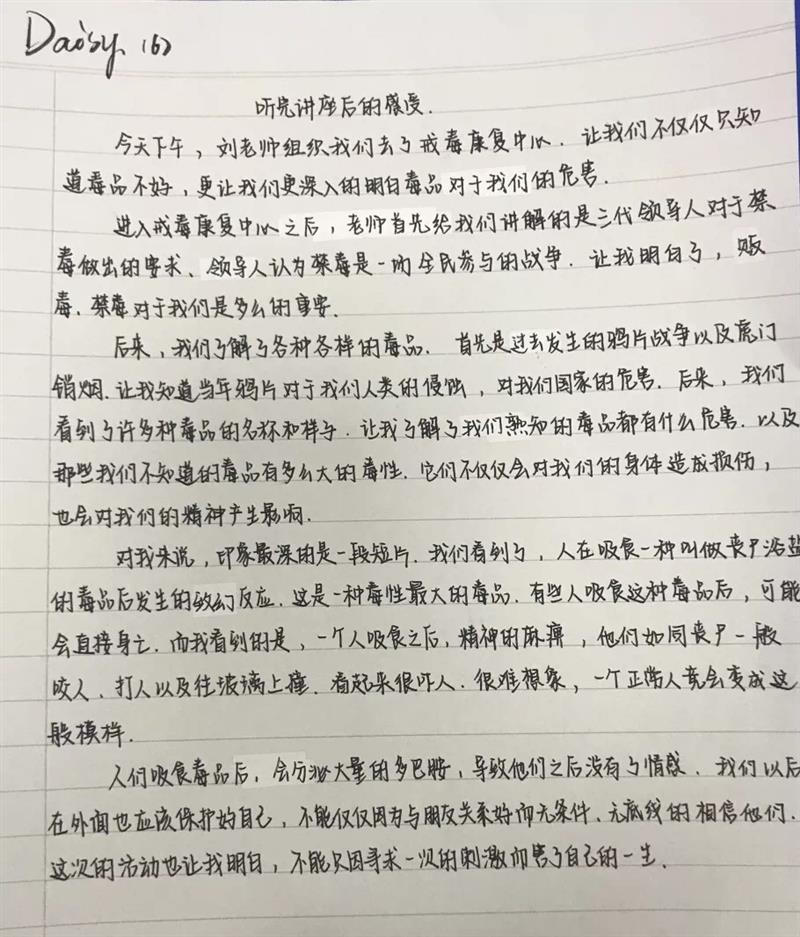 Daisy. (6)
听完讲座后的感受.
今天下午，刘老师组织我们去了戒毒康复中心. 让我们不仅仅只知
道毒品不好，更让我们更深入的明白毒品对于我们的危害.
进入戒毒康复中心之后，老师首先给我们讲解的是三代领导人对于禁
毒做出的要求、领导人认为禁毒是一场全民参与的战争. 让我明白了，贩
毒. 禁毒对于我们是多么的重要.
后来，我们了解了各种各样的毒品. 首先是过去发生的鸦片战争以及虎门
销烟. 让我知道当年鸦片对于我们人类的侵蚀，对我们国家的危害. 后来，我们
看到了许多种毒品的名称和样子. 让我了解了我们熟知的毒品都有什么危害. 以及
那些我们不知道的毒品有多么大的毒性. 它们不仅仅会对我们的身体造成损伤，
也会对我们的精神产生影响.
对我来说，印象最深的是一段短片. 我们看到了，人在吸食一种叫做丧尸浴盐
的毒品后发生的致幻反应. 这是一种毒性最大的毒品. 有些人吸食这种毒品后，可能
会直接身亡. 而我看到的是，一个人吸食之后，精神的麻痹，他们如同丧尸一般
咬人、打人以及往玻璃上撞. 看起来很吓人. 很难想象，一个正常人竟会变成这
般模样.
人们吸食毒品后，会分泌大量的多巴胺，导致他们之后没有了情感. 我们以后
在外面也应该保护好自己，不能仅仅因为与朋友关系好而无条件、无底线的相信他们.
这次的活动也让我明白，不能只因寻求一次的刺激而害了自己的一生.